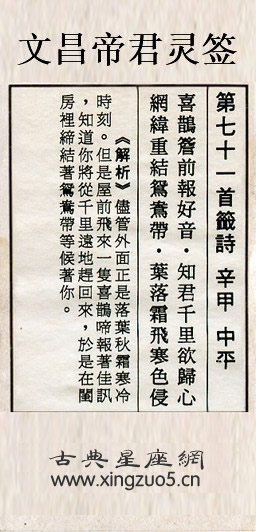 文昌帝君灵签
第七十一首籤詩 辛甲 中平
喜鵲簷前報好音·知君千里欲歸心
網緯重結鴛鴦帶·葉落霜飛寒色侵
《解析》儘管外面正是落葉秋霜寒冷
時刻。但是屋前飛來一隻喜鵲啼報著佳訊
,知道你將從千里遠地趕回來,於是在閨
房裡締結著鴛鴦帶等候著你。
古典星座網
www.xingzuo5.cn